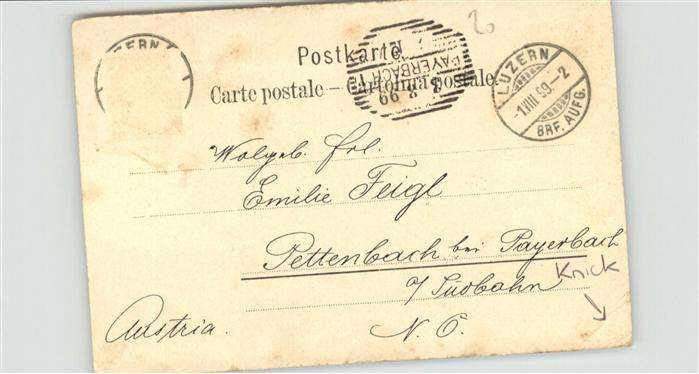 20
Postkarte.
Carte postale – Cartolina postale.
ZERN
PAYERBACH
3 8 99
LUZERN
-1.VIII.99-2
BRF. AUFG.
Wolgeb. Frl.
Emilie Feigl
Pettenbach bei Payerbach
a/ Südbahn
Knick
Austria.
N. Ö.